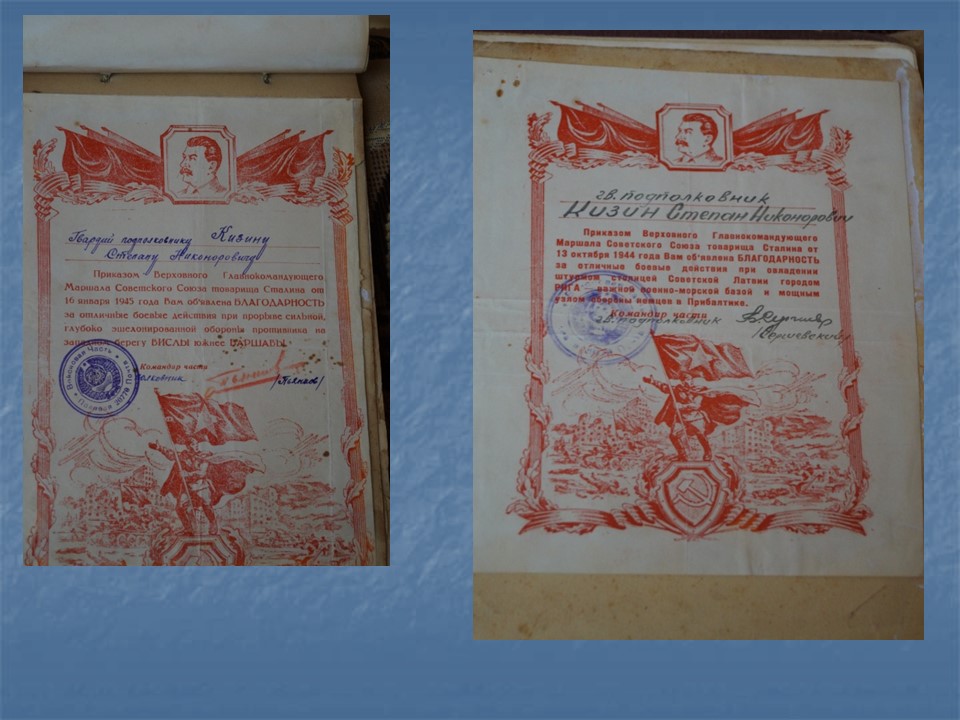 Гвардии подполковнику Кизину
Степану Никоноровичу
Приказом Верховного Главнокомандующего
Маршала Советского Союза товарища Сталина от
16 января 1945 года Вам об'явлена БЛАГОДАРНОСТЬ
за отличные боевые действия при прорыве сильной,
глубоко эшелонированной обороны противника на
западном берегу ВИСЛЫ южнее ВАРШАВЫ.
Командир части
полковник
гв. подполковник
Кизин Степан Никонорович
Приказом Верховного Главнокомандующего
Маршала Советского Союза товарища Сталина от
13 октября 1944 года Вам об'явлена БЛАГОДАРНОСТЬ
за отличные боевые действия при овладении
штурмом столицей Советской Латвии городом
РИГА — важной военно-морской базой и мощным
узлом обороны немцев в Прибалтике.
Командир части
гв. подполковник